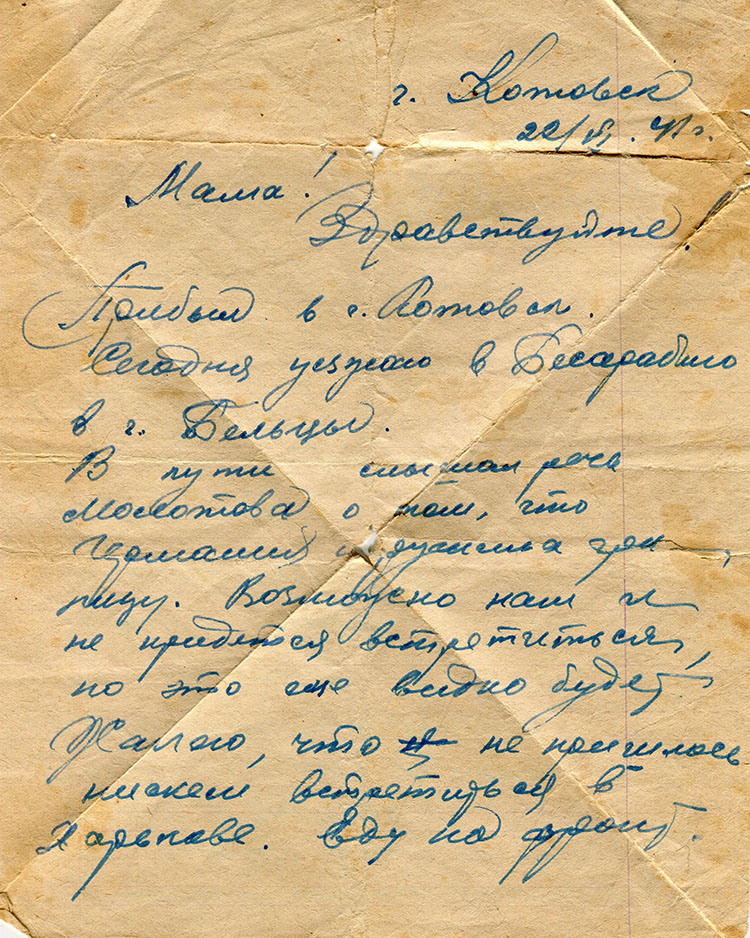 г. Котовск
22/VI. 41 г.
Мама!
Здравствуйте!
Прибыл в г. Котовск.
Сегодня уезжаю в Бесарабию
в г. Бельцы.
В пути слышал речь
Молотова о том, что
Германия нарушила гра-
ницу. Возможно нам и
не придется встретиться,
но это еще видно будет.
Жалею, что не пришлось
нискем встретиться в
Харькове. Еду на фронт.